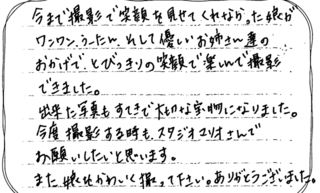 今まで撮影で笑顔を見せてくれなかった娘が
ワンワン、うーたん、そして優しいお姉さん達の
おかげで、とびっきりの笑顔で楽しんで撮影
できました。
出来た写真もすてきで大切な宝物になりました。
今度撮影する時も、スタジオマリオさんで
お願いしたいと思います。
また、娘をかわいく撮って下さい。ありがとうございました。